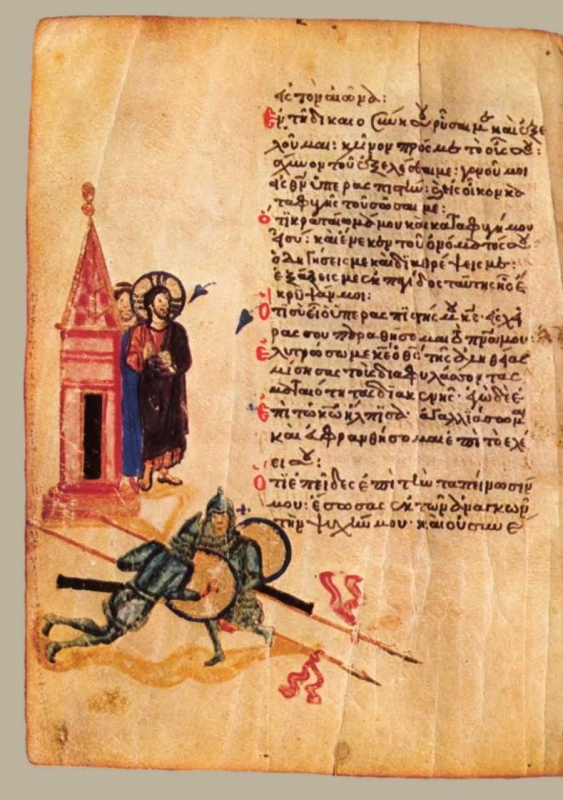 εἰς τὸν αἰῶνα:
Ἐν τῇ δικαιοσύνῃ σου ῥῦσαί με καὶ ἐξε
λοῦ μαι: κλῖνον πρός με τὸ οὖς σου:
τάχυνον τοῦ ἐξελέσθαι με: γενοῦ μοι
εἰς θν ὑπερασπιστὴν: εἰς οἶκον κα
ταφυγῆς τοῦ σῶσαί με:
Ὅτι κραταίωμά μου καὶ καταφυγή μου
εἶ σύ: καὶ ἕνεκεν τοῦ ὀνόματός σου
ὁδηγήσεις με καὶ διαθρέψεις με:
ἐξάξεις με ἐκ παγίδος ταύτης ἧς ἔ
κρυψάν μοι:
Ὅτι σὺ εἶ ὁ ὑπερασπιστής μου κε· εἰς χεῖ
ρας σου παραθήσομαι τὸ πνα μου:
Ἐλυτρώσω με κε ὁ θς τῆς ἀληθείας
ἐμίσησας τοὺς διαφυλάσσοντας
ματαιότητας διακενῆς· ἐγὼ δὲ
Ἐπὶ τῷ κω ἤλπισα· ἀγαλλιάσομαι
καὶ εὐφρανθήσομαι ἐπὶ τῷ ἐλέ
ει σου:
Ὅτι ἐπεῖδες ἐπὶ τὴν ταπείνωσίν
μου: ἔσωσας ἐκ τῶν ἀναγκῶν
τὴν ψυχήν μου· καὶ οὐ συνε